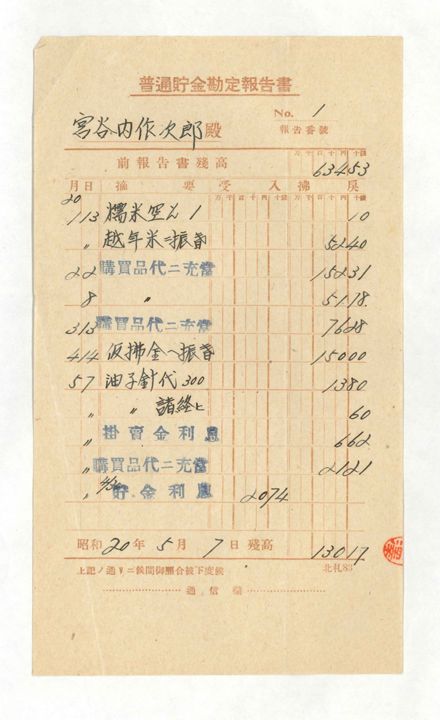 普通貯金勘定報告書
No. 1
報告番號
宮谷内作次郎殿
前報告書殘高 63453
月日 摘要 受入 拂戻
20
1 13 糯米空人 1 10
〃 越年米ニ振替 5240
2 2 購買品代ニ充當 15231
8 〃 5118
3 13 購買品代ニ充當 7628
4 14 仮拂金へ振替 15000
5 7 油子針代 300 1380
〃 〃 諸終上 60
〃 掛賣金利息 662
〃 購買品代ニ充當 2121
〃 貯金利息 2074
昭和20年5月7日殘高 13017
上記ノ通リニ候間御照合被下度候
北札83
通信欄